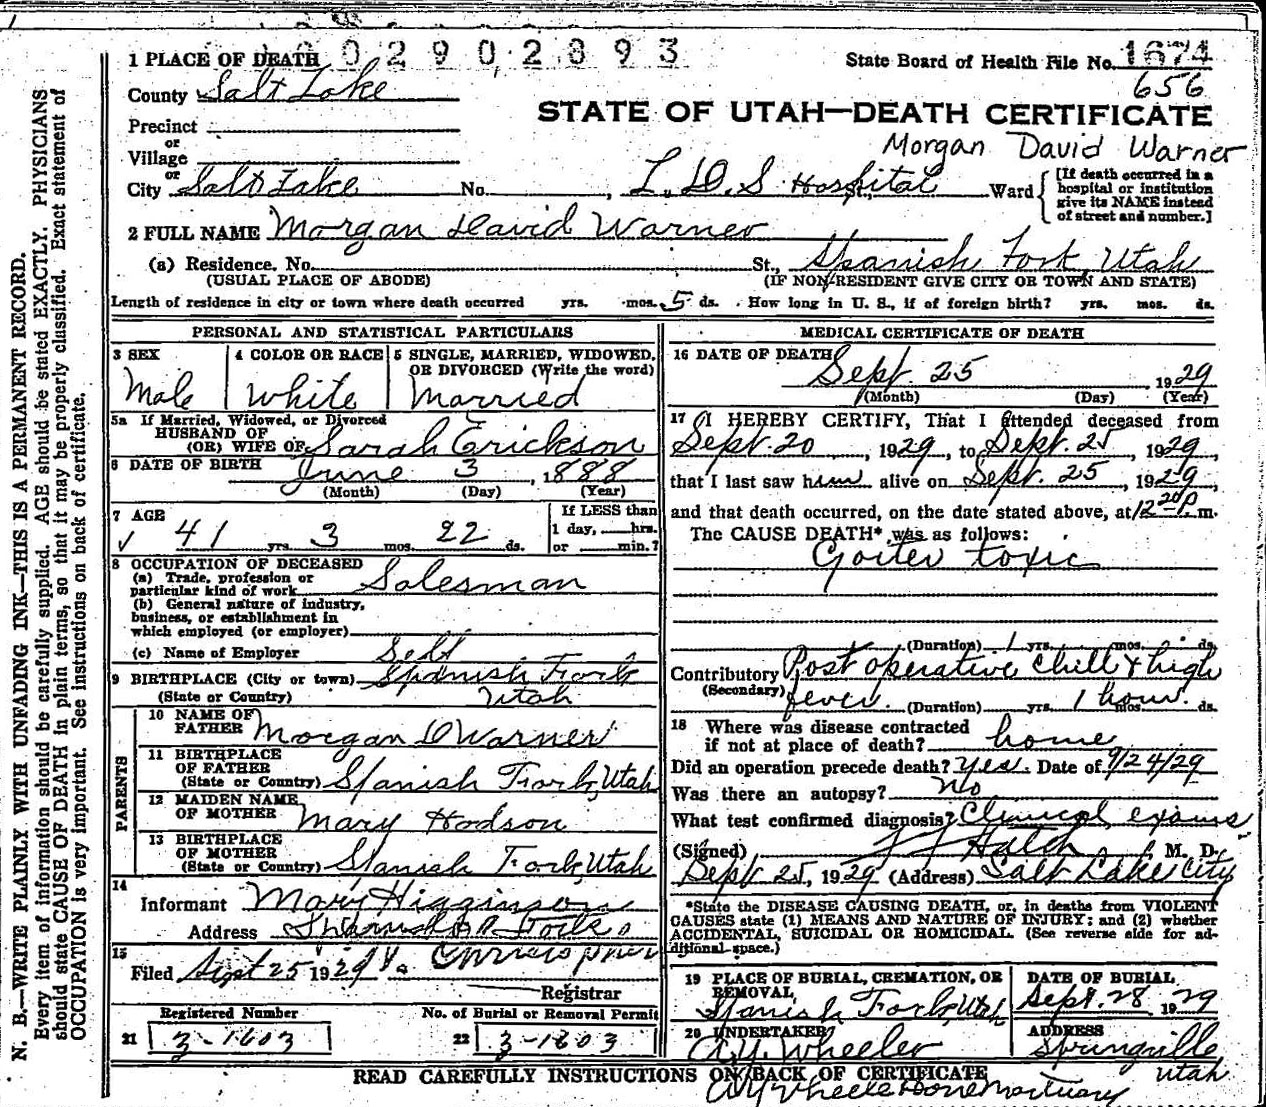 0 0 2 9 0 2 8 9 3
1 PLACE OF DEATH
State Board of Health File No. 1674
656
County Salt Lake
STATE OF UTAH—DEATH CERTIFICATE
Precinct
or
Village
Morgan David Warner
or
City Salt Lake No. , L. D. S Hospital St., Ward
[If death occurred in a hospital or institution give its NAME instead of street and number.]
2 FULL NAME Morgan David Warner
(a) Residence. No. St., Spanish Fork, Utah
(USUAL PLACE OF ABODE) (IF NON-RESIDENT GIVE CITY OR TOWN AND STATE)
Length of residence in city or town where death occurred yrs. mos. 5 ds. How long in U. S., if of foreign birth? yrs. mos. ds.
PERSONAL AND STATISTICAL PARTICULARS
3 SEX
Male
4 COLOR OR RACE
White
5 SINGLE, MARRIED, WIDOWED,
OR DIVORCED (Write the word)
Married
5a If Married, Widowed, or Divorced
HUSBAND OF
(OR) WIFE OF Sarah Erickson
6 DATE OF BIRTH June 3, 1888
(Month) (Day) (Year)
7 AGE
41 yrs. 3 mos. 22 ds.
If LESS than
1 day, hrs.
or min.?
8 OCCUPATION OF DECEASED
(a) Trade, profession or
particular kind of work Salesman
(b) General nature of industry,
business, or establishment in
which employed (or employer)
(c) Name of Employer Self
9 BIRTHPLACE (City or town) Spanish Fork
(State or Country) Utah
PARENTS
10 NAME OF
FATHER Morgan D Warner
11 BIRTHPLACE
OF FATHER
(State or Country) Spanish Fork, Utah
12 MAIDEN NAME
OF MOTHER Mary Hodson
13 BIRTHPLACE
OF MOTHER
(State or Country) Spanish Fork, Utah
14
Informant Mary Higginson
Address Spanish Fork
15
Filed Sept 25 1929
Registrar
Registered Number
21 3-1603
No. of Burial or Removal Permit
22 3-1603
MEDICAL CERTIFICATE OF DEATH
16 DATE OF DEATH
Sept 25, 1929
(Month) (Day) (Year)
17 I HEREBY CERTIFY, That I attended deceased from
Sept. 20, 1929, to Sept. 25, 1929
that I last saw him alive on Sept. 25, 1929,
and that death occurred, on the date stated above, at 12 20 P m.
The CAUSE DEATH* was as follows:
Goiter toxic
(Duration) 1 yrs. mos. ds.
Contributory Post operative chill & high
(Secondary) fever. (Duration) yrs. 1 hour. mos. ds.
18 Where was disease contracted
if not at place of death? home
Did an operation precede death? Yes. Date of 9/24/29
Was there an autopsy? No
What test confirmed diagnosis? Clinical exams
(Signed) Hatch, M. D.
Sept 25, 1929 (Address) Salt Lake City
*State the DISEASE CAUSING DEATH, or, in deaths from VIOLENT
CAUSES state (1) MEANS AND NATURE OF INJURY; and (2) whether
ACCIDENTAL, SUICIDAL OR HOMICIDAL. (See reverse side for ad-
ditional space.)
19 PLACE OF BURIAL, CREMATION, OR
REMOVAL
Spanish Fork, Utah
DATE OF BURIAL
Sept. 28 1929
20 UNDERTAKER
A.Y. Wheeler
ADDRESS
Springville
Utah
READ CAREFULLY INSTRUCTIONS ON BACK OF CERTIFICATE
A Y Wheeler Mortuary
N. B.—WRITE PLAINLY WITH UNFADING INK—THIS IS A PERMANENT RECORD.
Every item of information should be carefully supplied. AGE should be stated EXACTLY. PHYSICIANS
should state CAUSE OF DEATH in plain terms, so that it may be properly classified. Exact statement of
OCCUPATION is very important. See instructions on back of certificate.